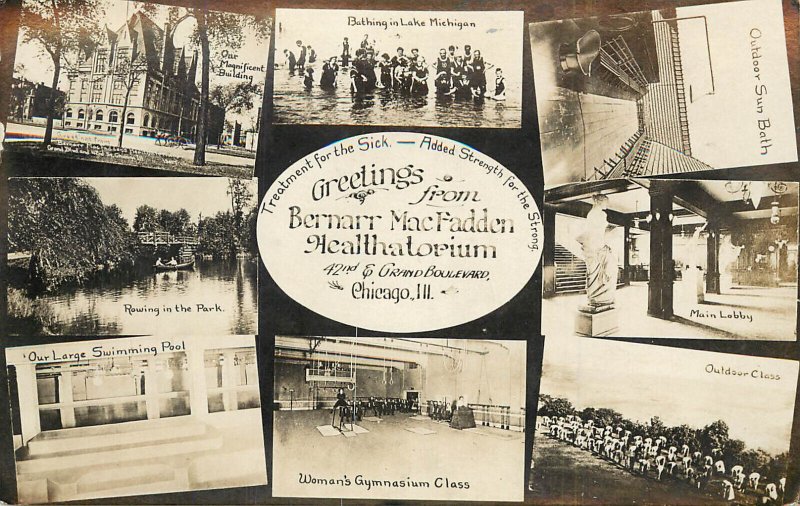 Our
Magnificent
Building
Bathing in Lake Michigan
Outdoor Sun Bath
Treatment for the Sick. — Added Strength for the Strong.
Greetings from
Bernarr MacFadden
Healthatorium
42nd & Grand Boulevard,
Chicago, Ill.
Rowing in the Park.
Main Lobby
Our Large Swimming Pool
Woman's Gymnasium Class
Outdoor Class